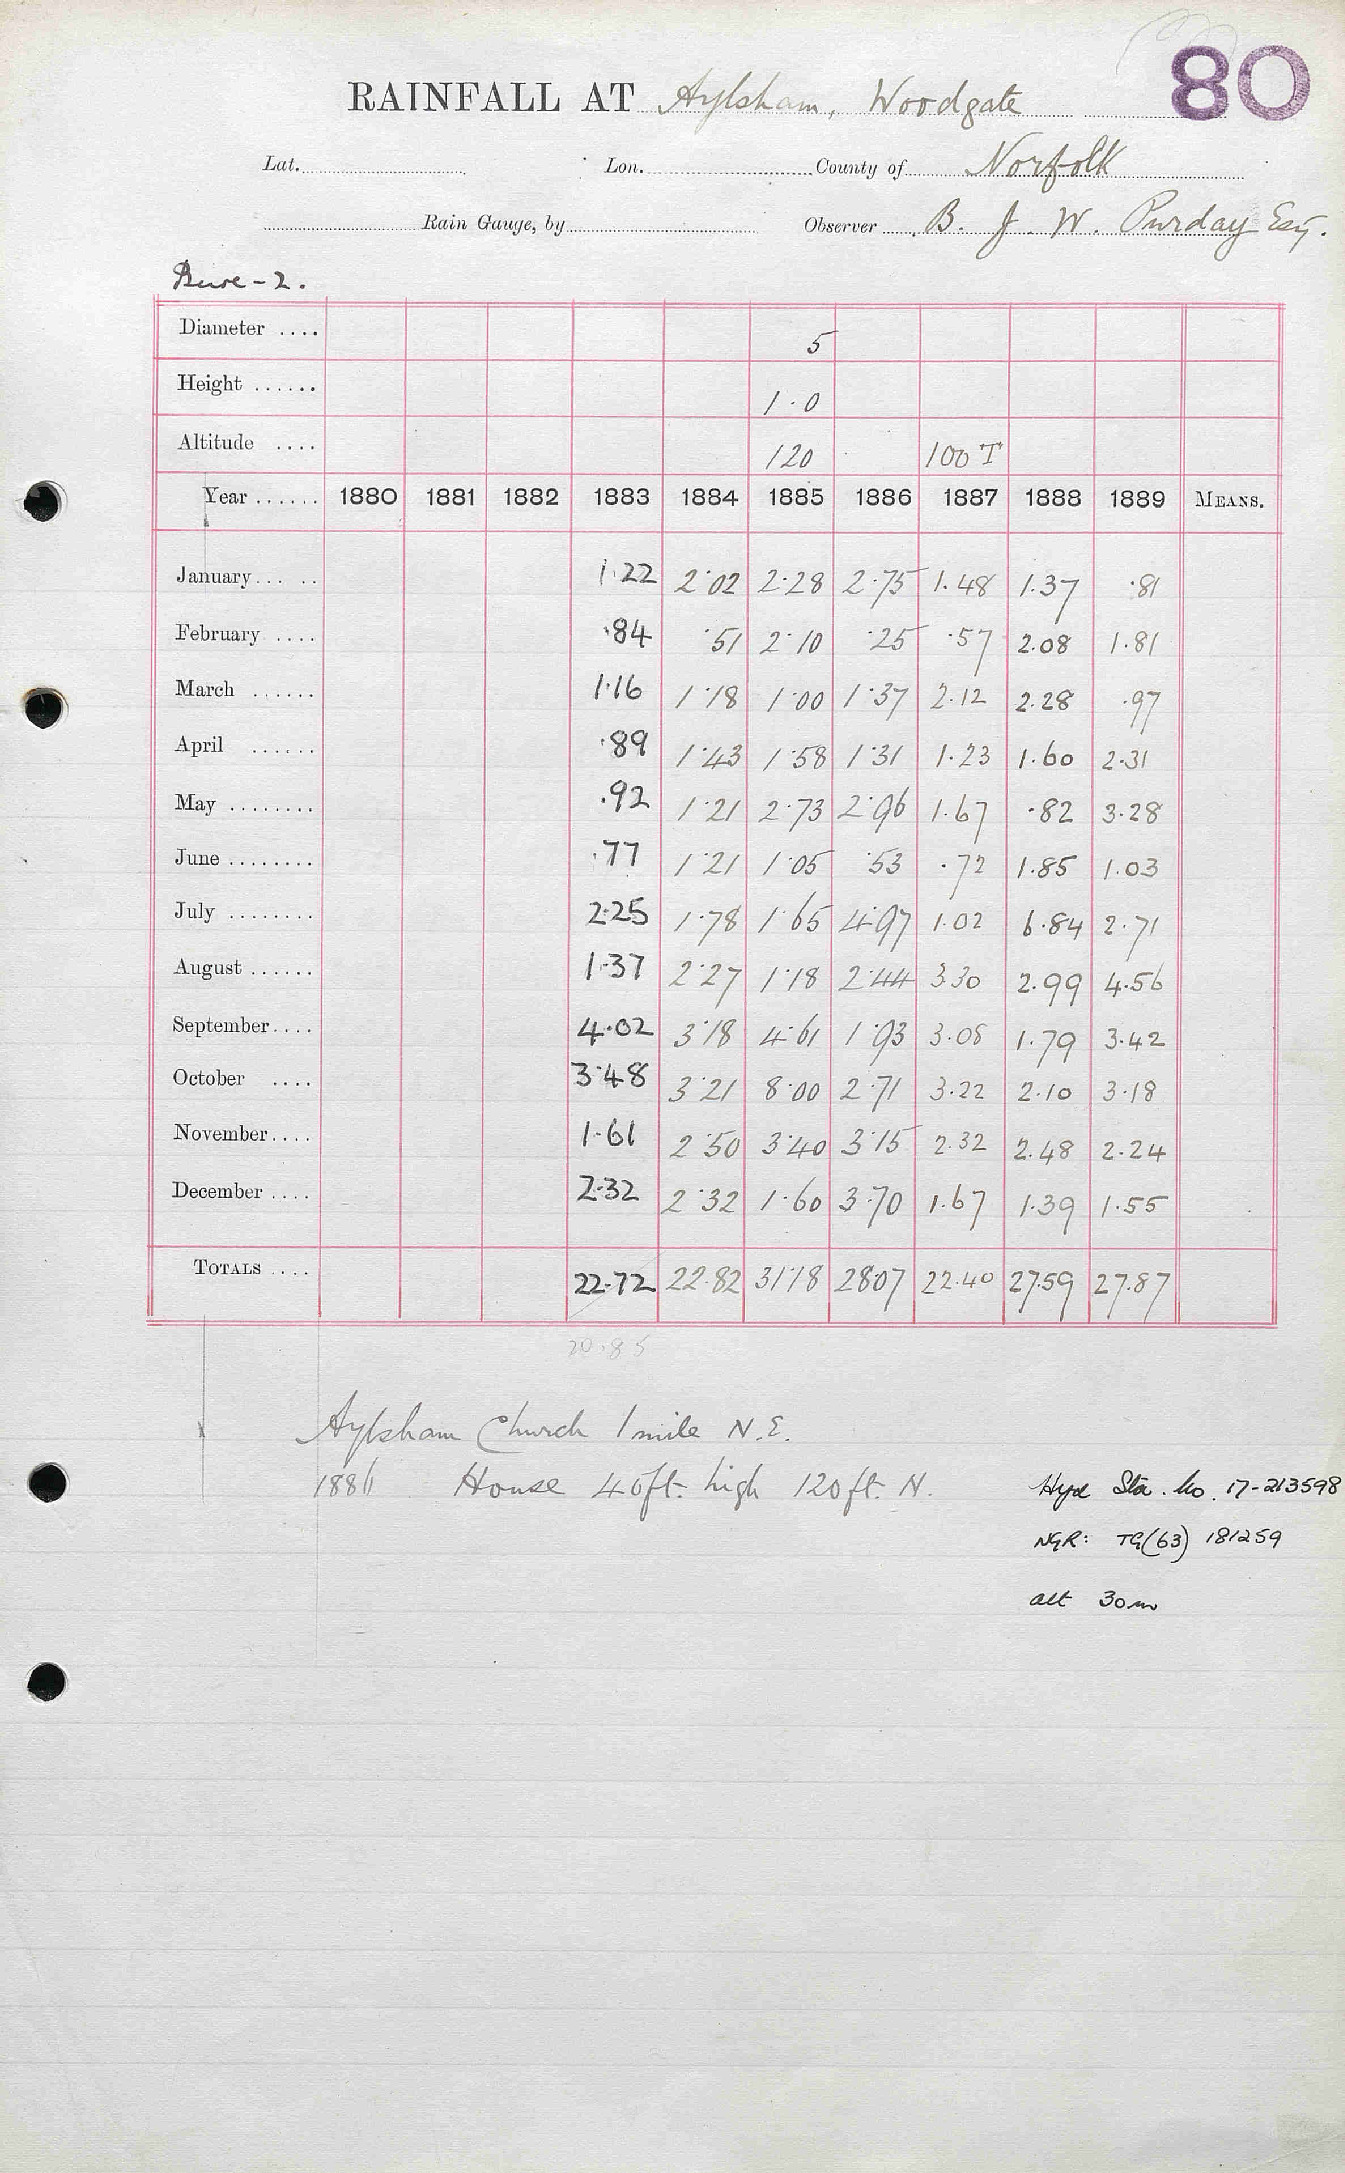 80
RAINFALL AT Aylsham, Woodgate
Lat. Lon. County of Norfolk
Rain Gauge, by Observer B. J. W. Purday Esq.
Bure - 2.
Diameter .... 5
Height ...... 1·0
Altitude .... 120 100 T
Year ...... 1880 1881 1882 1883 1884 1885 1886 1887 1888 1889 MEANS.
January... .. 1·22 2·02 2·28 2·75 1.48 1.37 ·81
February .... ·84 ·51 2·10 ·25 ·57 2.08 1.81
March ...... 1·16 1·18 1·00 1·37 2.12 2.28 .97
April ...... ·89 1·43 1·58 1·31 1.23 1.60 2.31
May ........ .92 1·21 2·73 2·96 1.67 ·82 3.28
June ........ .77 1·21 1·05 ·53 .72 1.85 1.03
July ........ 2·25 1·78 1·65 4·97 1.02 6.84 2.71
August ...... 1·37 2·27 1·18 2·44 3 30 2.99 4.56
September.... 4.02 3·18 4·61 1·93 3.08 1.79 3.42
October .... 3·48 3·21 8·00 2·71 3.22 2.10 3.18
November.... 1·61 2·50 3·40 3·15 2.32 2.48 2.24
December .... 2·32 2·32 1·60 3·70 1.67 1.39 1.55
TOTALS .... 22·72 22·82 31·18 28·07 22.40 27.59 27.87
20.85
Aylsham Church 1 mile N.E.
1886 House 40ft. high 120ft. N.
Hyd Sta. No. 17-213598
NGR: TG(63) 181259
alt 30m